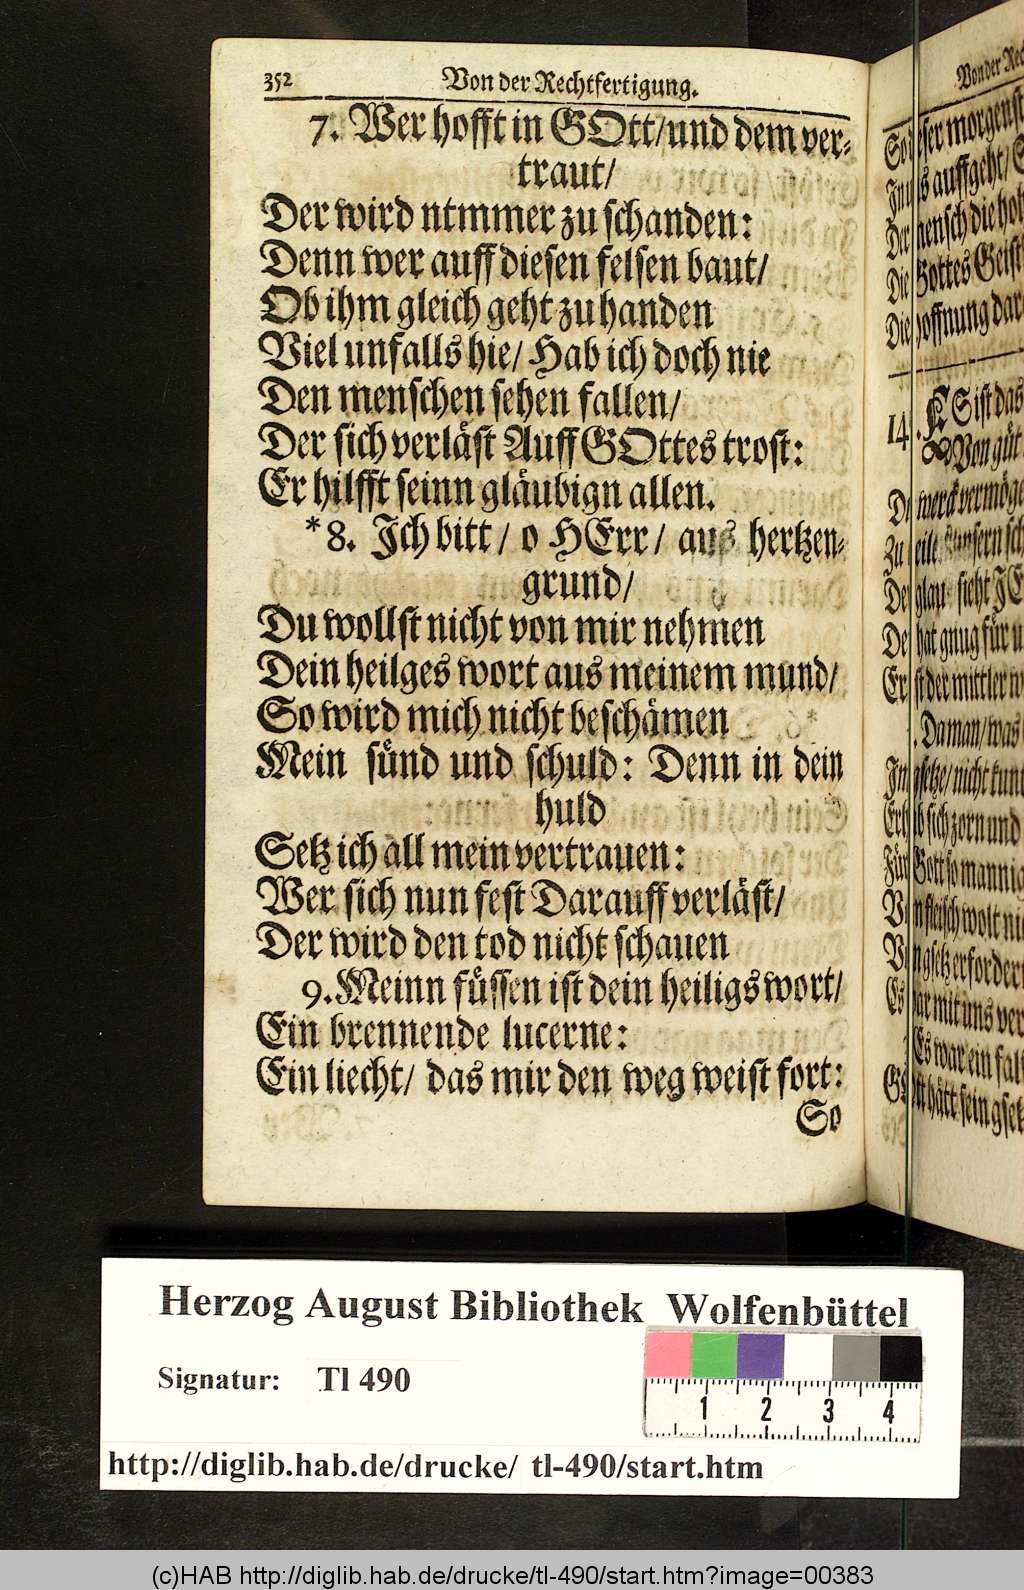 352 Von der Rechtfertigung.
7. Wer hofft in GOtt/und dem ver-
traut/
Der wird ntmmer zu schanden:
Denn wer auff diesen felsen baut/
Ob ihm gleich geht zu handen
Viel unfalls hie/ Hab ich doch nie
Den menschen sehen fallen/
Der sich verläst Auff GOttes trost:
Er hilfft seinn gläubign allen.
*8. Ich bitt/ o HErr/ aus hertzen-
grund/
Du wollst nicht von mir nehmen
Dein heilges wort aus meinem mund/
So wird mich nicht beschämen
Mein sünd und schuld: Denn in dein
huld
Setz ich all mein vertrauen:
Wer sich nun fest Darauff verläst/
Der wird den tod nicht schauen
9. Meinn füssen ist dein heiligs wort/
Ein brennende lucerne:
Ein liecht/ das mir den weg weist fort:
So
Von der
morgenst
auffgeht/
mensch die
Gottes Geist
hoffnung
14. ES ist das
Von güt
werck vermöge
hat gnug für
Er ist der mittler
Da man/was
sich zorn und
Gott so mannig
fleisch wolt
gsetz erfordert
war mit uns
Es war ein fal
hätt sein gsetz
Herzog August Bibliothek Wolfenbüttel
Signatur: Tl 490
1 2 3 4
http://diglib.hab.de/drucke/ tl-490/start.htm
(c)HAB http://diglib.hab.de/drucke/tl-490/start.htm?image=00383